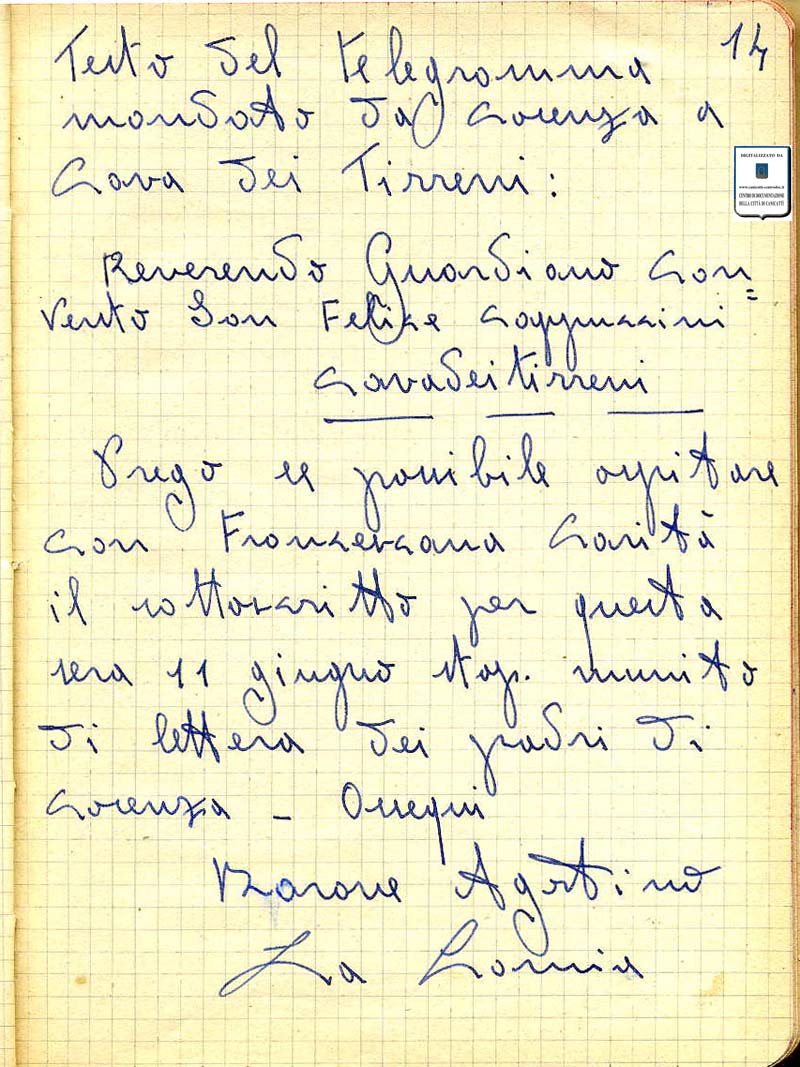 14
Testo del telegramma
mandato da Cosenza a
Cava dei Tirreni:
DIGITALIZZATO DA
www.canicatti-centrodoc.it
CENTRO DI DOCUMENTAZIONE
DELLA CITTÀ DI CANICATTÌ
Reverendo Guardiano Con=
vento San Felice Cappuccini
Cavadeitirreni
Prego se possibile ospitare
con Francescana Carità
il sottoscritto per questa
sera 11 giugno stop. munito
di lettera dei padri di
Cosenza - Ossequi
Barone Agostino
La Lomia